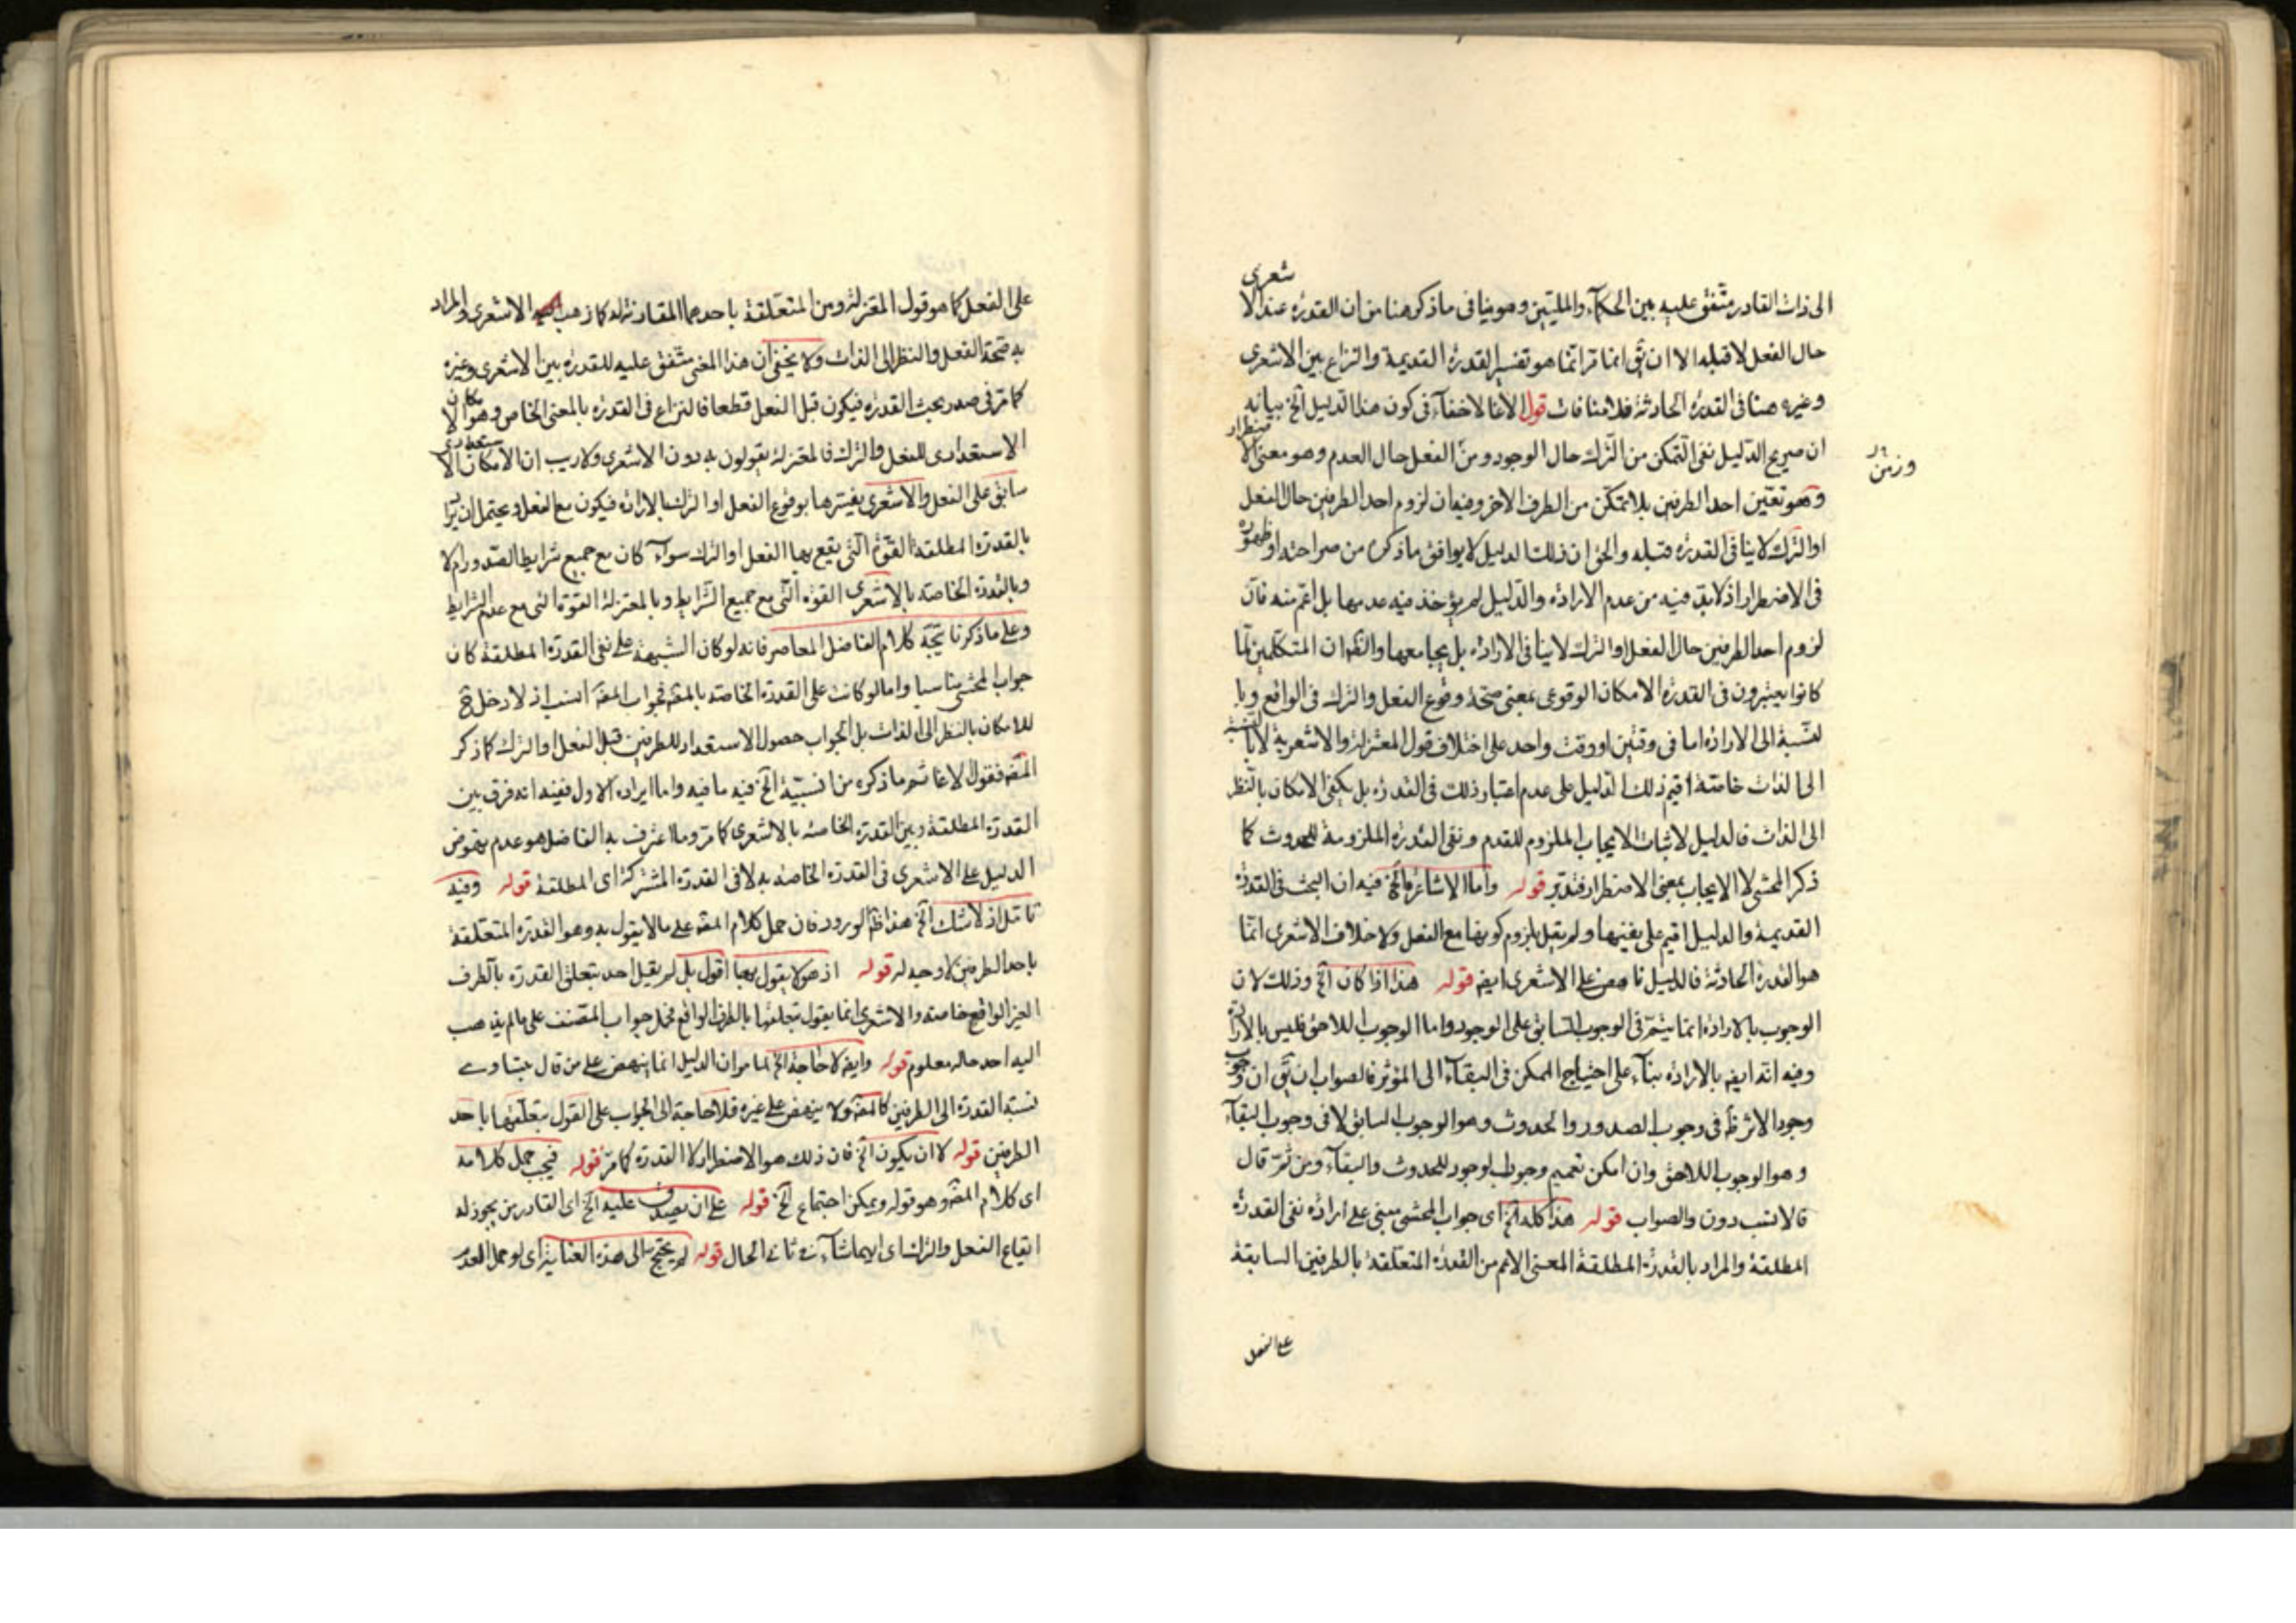 الى ذات القادر متّفق عليه بين الحكمآء والمليّين وهو ينافى ما ذكر هنا من ان القدرة عند الاشعرى
حال الفعل لا قبله الا ان يق انما مرّ انّما هو تفسير القدرة القديمة والنزاع بين الاشعرى
وغيره هنا فى القدرة الحادثة فلا منافات قول الاغا لاخفآء فى كون هذا الدليل الخ بيانه
ان صريح الدّليل نفى التّمكن من التّرك حال الوجود ومن الفعل حال العدم وهو معنى الاضطرار
وهو تعيّن احد الطرفين بلا تمكّن من الطرف الاخر وفيه ان لزوم احد الطرفين حال الفعل
وزمن
او الترك لا ينافى القدرة قبله والحق ان ذلك الدليل لا يوافق ما ذكره من صراحته او ظهوره
فى الاضطرار اذ لا بدّ فيه من عدم الارادة والدّليل لم يؤخذ فيه عدمها بل اعم منه فانّ
لزوم احد الطرفين حال الفعل او الترك لا ينافى الارادة بل يجامعها والظ ان المتكلّمين لمّا
كانوا يعتبرون فى القدرة الامكان الوقوعى بمعنى صحّة وقوع الفعل والترك فى الواقع وبا
لنّسبة الى الارادة اما فى وقتين او وقت واحد على اختلاف قول المعتزلة والاشعرية لا بالنسبة
الى الذات خاصّة اقيم ذلك الدّليل على عدم اعتبار ذلك فى القدرة بل يكفى الامكان بالنّظر
الى الذات فالدليل لاثبات الايجاب الملزوم للقدم ونفى القدرة الملزومة للحدوث كما
ذكر المحشى لا الايجاب بمعنى الاضطرار فتدبّر قوله واما الاشاعرة الخ فيه ان البحث فى القدرة
القديمية والدليل اقيم على نفيها ولم يقل بلزوم كونها مع الفعل ولا خلاف الاشعرى انّما
هو القدرة الحادثة فالدليل ناهض على الاشعرى ايضه قوله هذا اذا كان الخ وذلك لان
الوجوب بالارادة انما يثمر فى الوجوب السّابق على الوجود واما الوجوب اللاحق فليس بالارادة
وفيه انه ايضه بالارادة بنآء على احتياج الممكن فى البقآء الى المؤثر فالصواب ان يق ان وجوب
وجود الاثر ظ فى وجوب الصدور والحدوث وهو الوجوب السابق لا فى وجوب البقآء
وهو الوجوب اللاحق وان امكن تعميم وجوب الوجود للحدوث والبقآء ومن ثمّ قال
فالانسب دون والصواب قوله هذا كله الخ اى جواب المحشى مبنى على ارادة نفى القدرة
المطلقة والمراد بالقدرة المطلقة المعنى الاعم من القدرة المتعلقة بالطرفين السابقة
على الفعل
على الفعل كما هو قول المعتزلة ومن المتعلّقة باحدهما المقارنة له كما ذهب اليه الاشعرى والمراد
به صحّة الفعل والنظر الى الذات ولا يخفى ان هذا المعنى متّفق عليه للقدرة بين الاشعرى وغيره
كما مرّ فى صدر بحث القدرة فيكون قبل الفعل قطعا فالنزاع فى القدرة بالمعنى الخاص وهو الامكان
الاستعدادى للفعل والترك فالمعتزلة يقولون به دون الاشعرى ولا ريب ان الامكان الاستعدادى
سابق على الفعل والاشعرى يفسّرها بوقوع الفعل او الترك بالارادة فيكون مع الفعل ويحتمل ان يراد
بالقدرة المطلقة القوّة الّتى يقع بها الفعل او الترك سوآء كان مع جميع شرايط الصّدور ام لا
وبالقدرة الخاصّة بالاشعرى القوّة الّتى مع جميع الشّرايط وبالمعتزلة القوّة التى مع عدم الشّرايط
وعلى ما ذكرنا يتّجه كلام الفاضل المعاصر فانه لو كان الشبهة على نفى القدرة المطلقة كان
جواب المحشى مناسبا واما لو كانت على القدرة الخاصّة بالمعتزلة فجواب المصّه انسب اذ لا دخل ح
للامكان بالنظر الى الذات بل الجواب حصول الاستعداد للطرفين قبل الفعل او الترك كما ذكر
المصّه فقول الاغا ثم ما ذكره من انسبيّة الخ فيه ما فيه واما ايراده الاول ففيه انه فرق بين
القدرة المطلقة وبين القدرة الخاصّة بالاشعرى كما مرّ وما اعترف به الفاضل هو عدم نهوض
الدليل على الاشعرى فى القدرة الخاصّة به لا فى القدرة المشتركة اى المطلقة قوله وفيه
تامّل اذ لا شك الخ هذا ظ الورود فان حمل كلام المصّه على ما لا يقول به وهو القدرة المتعلقة
باحد الطرفين لا وجه له قوله اذ هو لا يقول بها اقول بل لم يقل احد بتعلق القدرة بالطرف
الغير الواقع خاصة والاشعرى انما يقول بتعلقها بالطرف الواقع فحمل جواب المصّنف على ما لم يذهب
اليه احد حاله معلوم قوله وايضه لا حاجة الخ لما مرّ ان الدليل انما ينهض على من قال بتساوى
نسبة القدرة الى الطرفين كالمصّه ولا ينهض على غيره فلا حاجة الى الجواب على القول بتعلّقها باحد
الطرفين قوله لا ان يكون الخ فان ذلك هو الاضطرار لا القدرة كما مرّ قوله فيجب حمل كلامه
اى كلام المصّه وهو قوله ويمكن اجتماع الخ قوله على ان يصدق عليه الخ اى القادر من يجوز له
ايقاع الفعل والترك اى ايهما شآء فى ثانى الحال قوله لم يحتج الى هذه العناية اى لو حمل العدم